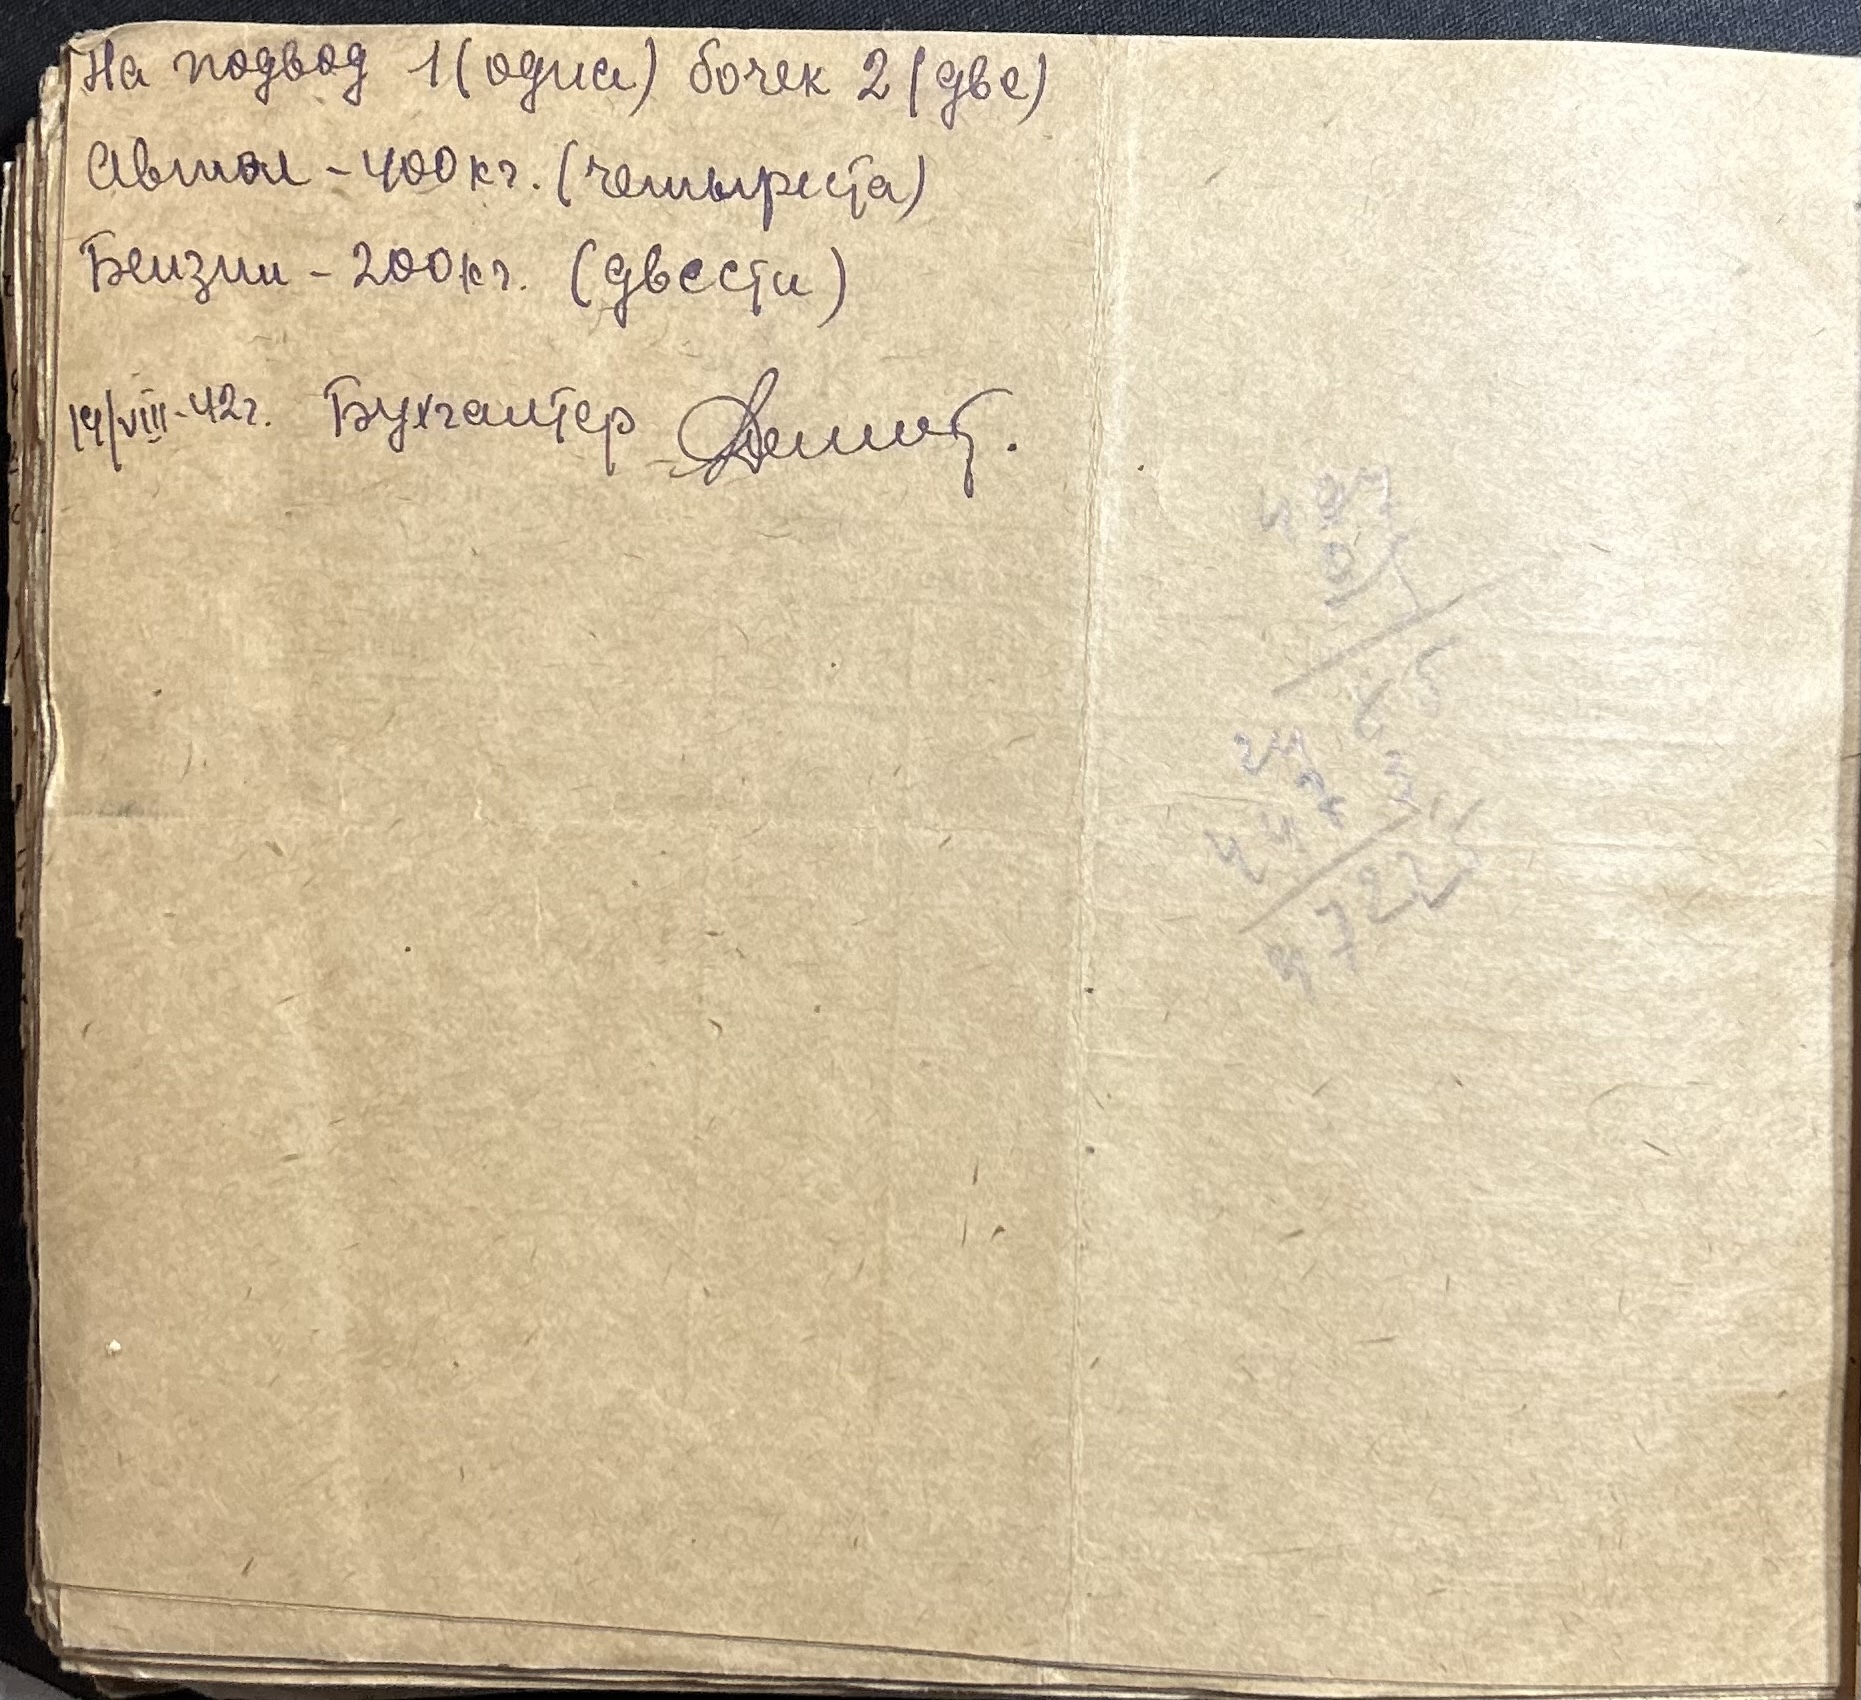 На подвод 1 (одна) бочек 2 (две)
Автол - 400 кг. (четыреста)
Бензин - 200 кг. (двести)
14/VIII-42 г. Бухгалтер